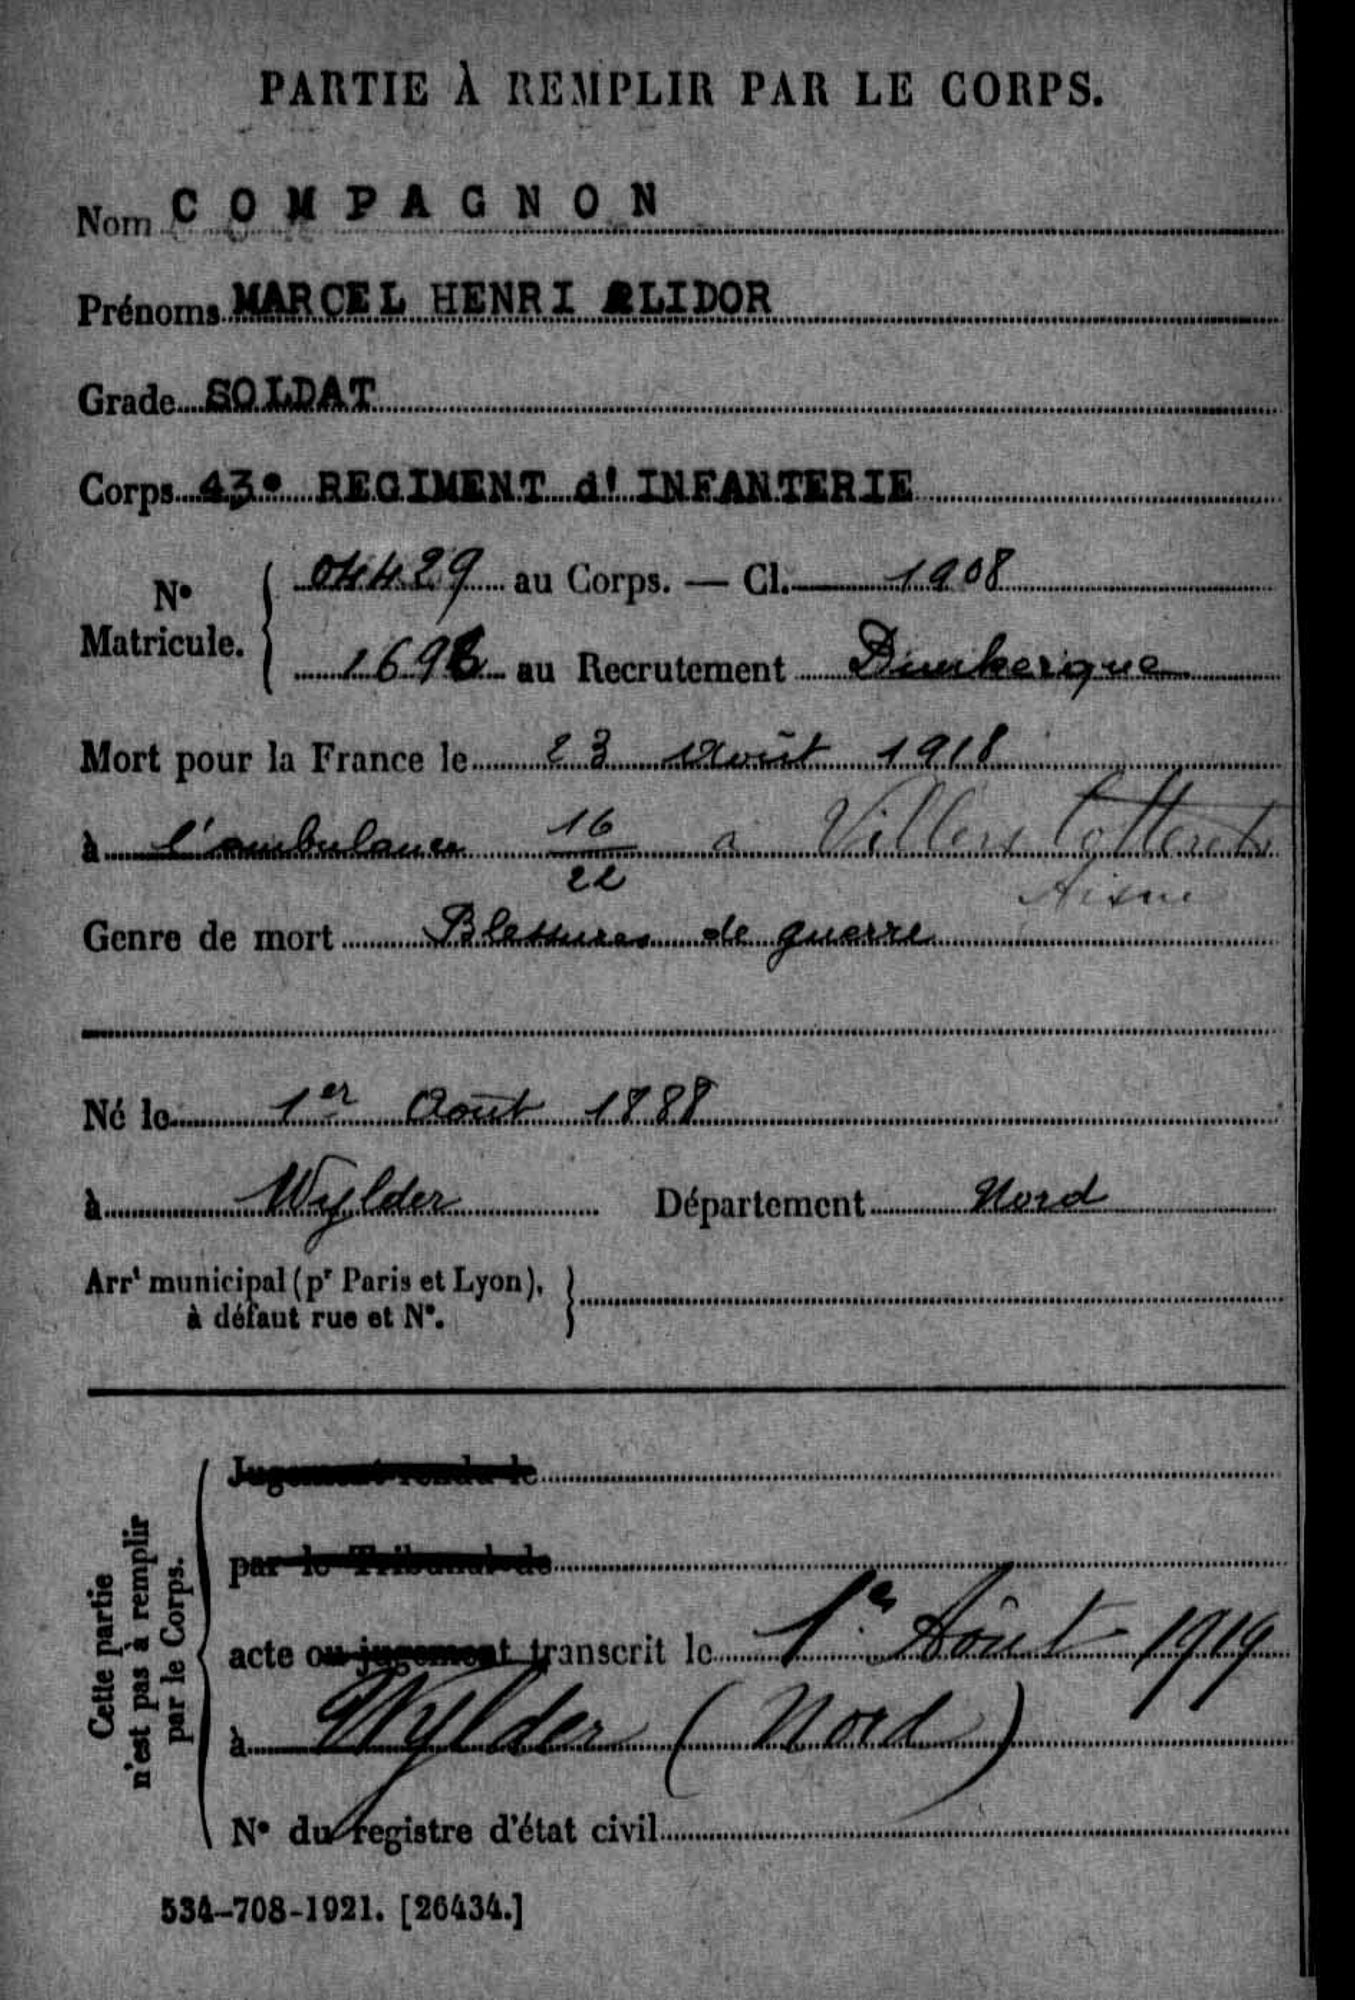 PARTIE À REMPLIR PAR LE CORPS.
Nom COMPAGNON
Prénoms MARCEL HENRI ELIDOR
Grade SOLDAT
Corps 43e REGIMENT d'INFANTERIE
N° Matricule.
04429 au Corps. — Cl. 1908
au Recrutement Dunkerque
Mort pour la France le 23 Août 1918
à l'ambulance 16/22 à Villers Cotterets
Aisne
Genre de mort Blessures de guerre
Né le 1er Août 1888
à Wylder Département Nord
Arrt municipal (pr Paris et Lyon),
à défaut rue et N°.
Cette partie
n'est pas à remplir
par le Corps.
Jugement rendu le
par le Tribunal de
acte ou jugement transcrit le 1er Août 1919
à Wylder (Nord)
N° du registre d'état civil
534-708-1921. [26434.]